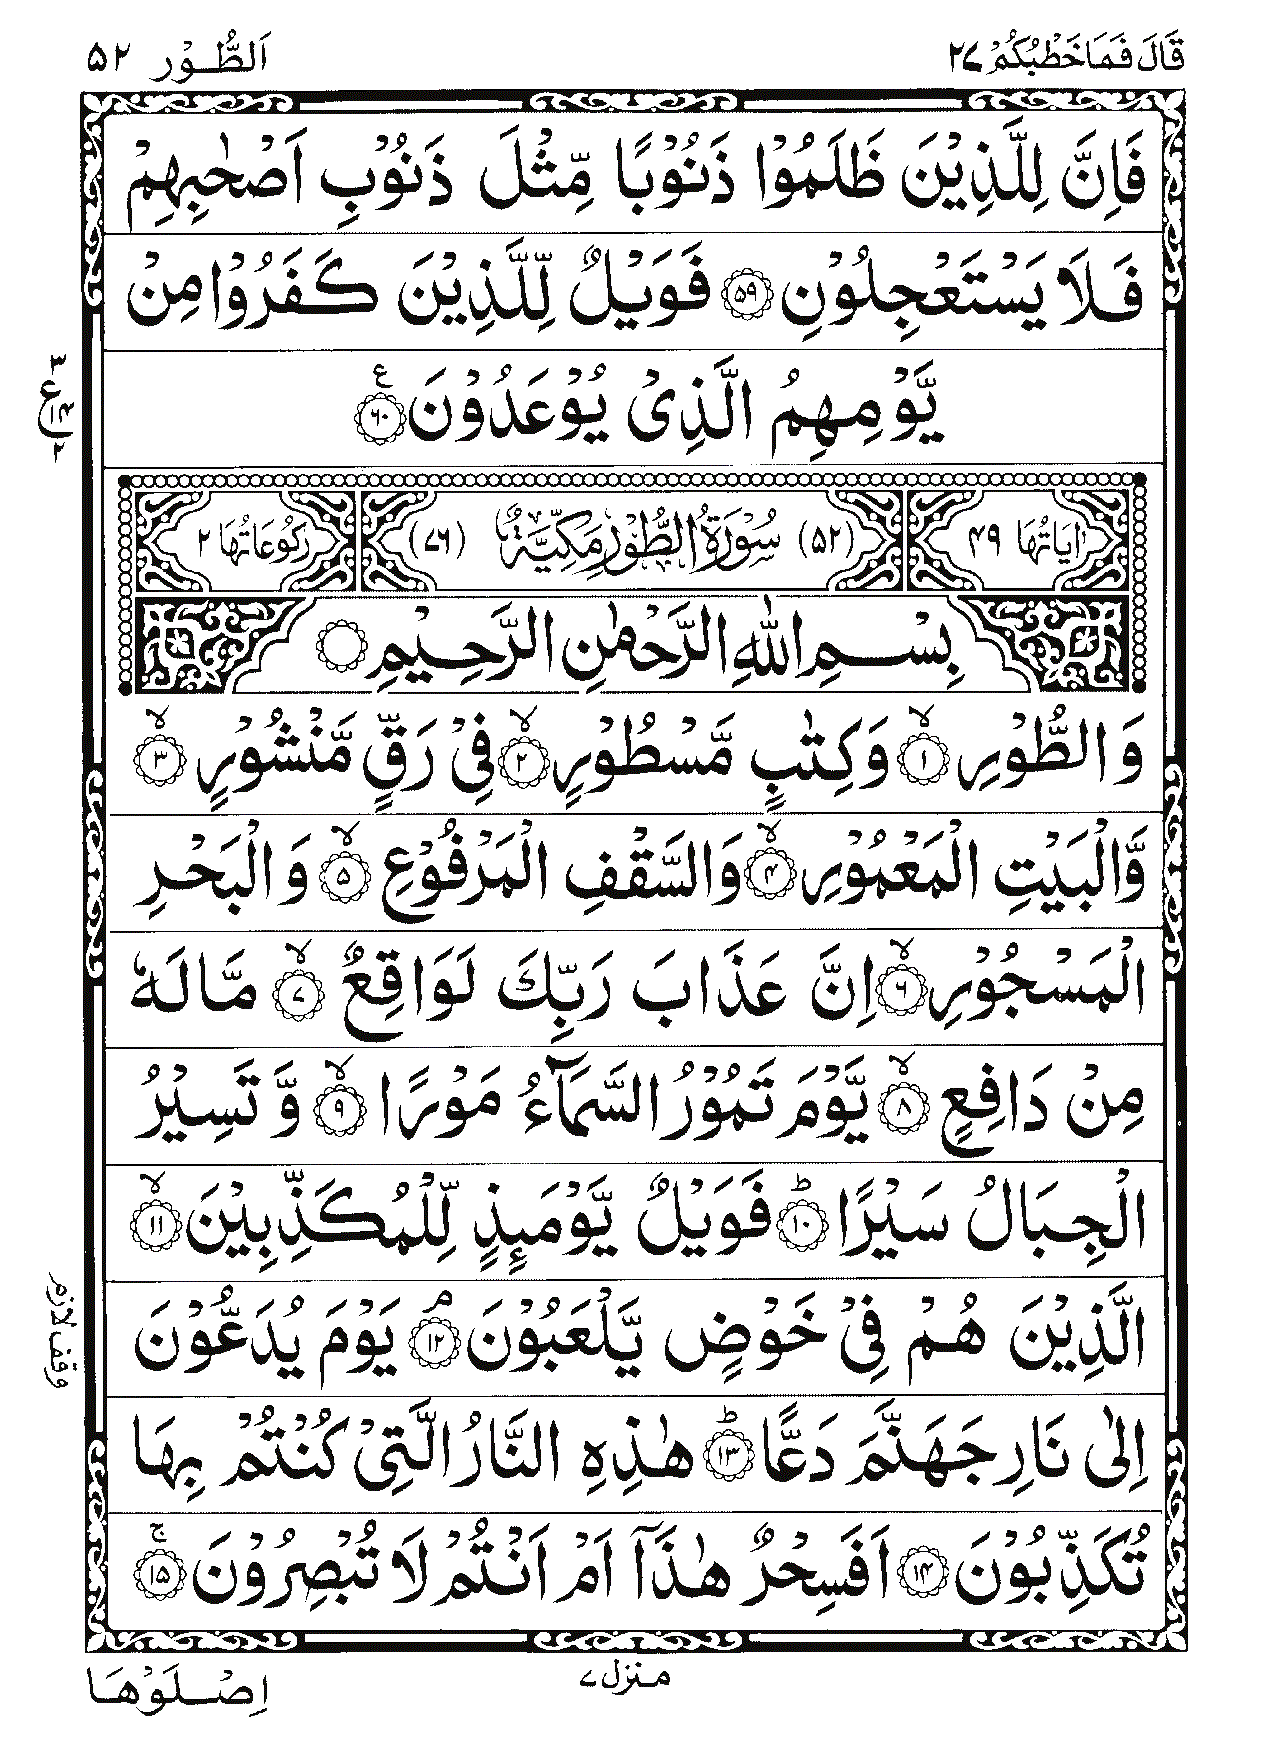 قَالَ فَمَا خَطْبُكُمْ ۲۷
اَلطُّوْر ۵۲
فَاِنَّ لِلَّذِیْنَ ظَلَمُوْا ذَنُوْبًا مِّثْلَ ذَنُوْبِ اَصْحٰبِهِمْ
فَلَا یَسْتَعْجِلُوْنِ ﴿۵۹﴾ فَوَیْلٌ لِّلَّذِیْنَ كَفَرُوْا مِنْ
یَّوْمِهِمُ الَّذِیْ یُوْعَدُوْنَ ﴿۶۰﴾ۧ
۳
ع
۱۴
۲
اٰیَاتُهَا ۴۹
(۵۲) سُوْرَةُ الطُّوْرِ مَكِّیَّةٌ (۷۶)
رُكُوْعَاتُهَا ۲
بِسْمِ اللّٰهِ الرَّحْمٰنِ الرَّحِیْمِ
وَالطُّوْرِ ﴿۱﴾ۙ وَكِتٰبٍ مَّسْطُوْرٍ ﴿۲﴾ۙ فِیْ رَقٍّ مَّنْشُوْرٍ ﴿۳﴾ۙ
وَّالْبَیْتِ الْمَعْمُوْرِ ﴿۴﴾ۙ وَالسَّقْفِ الْمَرْفُوْعِ ﴿۵﴾ۙ وَالْبَحْرِ
الْمَسْجُوْرِ ﴿۶﴾ۙ اِنَّ عَذَابَ رَبِّكَ لَوَاقِعٌ ﴿۷﴾ۙ مَّا لَهٗ
مِنْ دَافِعٍ ﴿۸﴾ۙ یَّوْمَ تَمُوْرُ السَّمَآءُ مَوْرًا ﴿۹﴾ۙ وَّ تَسِیْرُ
الْجِبَالُ سَیْرًا ﴿۱۰﴾ؕ فَوَیْلٌ یَّوْمَىِٕذٍ لِّلْمُكَذِّبِیْنَ ﴿۱۱﴾ۙ
الَّذِیْنَ هُمْ فِیْ خَوْضٍ یَّلْعَبُوْنَ ﴿۱۲﴾ۘ یَوْمَ یُدَعُّوْنَ
وقف لازم
اِلٰی نَارِ جَهَنَّمَ دَعًّا ﴿۱۳﴾ؕ هٰذِهِ النَّارُ الَّتِیْ كُنْتُمْ بِهَا
تُكَذِّبُوْنَ ﴿۱۴﴾ اَفَسِحْرٌ هٰذَاۤ اَمْ اَنْتُمْ لَا تُبْصِرُوْنَ ﴿۱۵﴾ۚ
منزل ۷
اِصْلَوْهَا